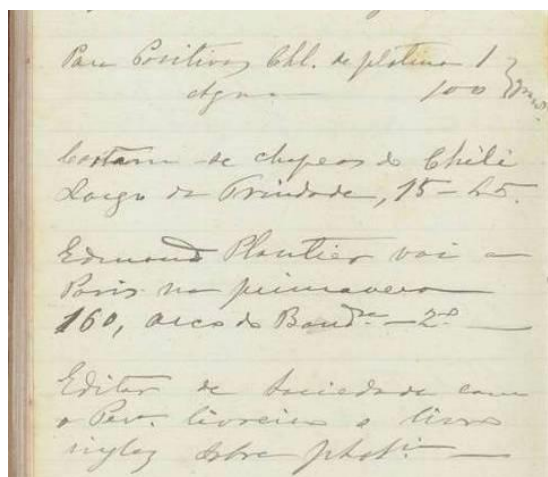 Para Positivos Chl. de platina 1
Agua 100
de chapeos do Chili
Largo da Trindade, 15-25.
Edmond Plantier vai a
Paris na primavera
160, arco do Bandra - 2º
Editar de sociedade com
o Rev. livreiro o livro
inglez sobre phot